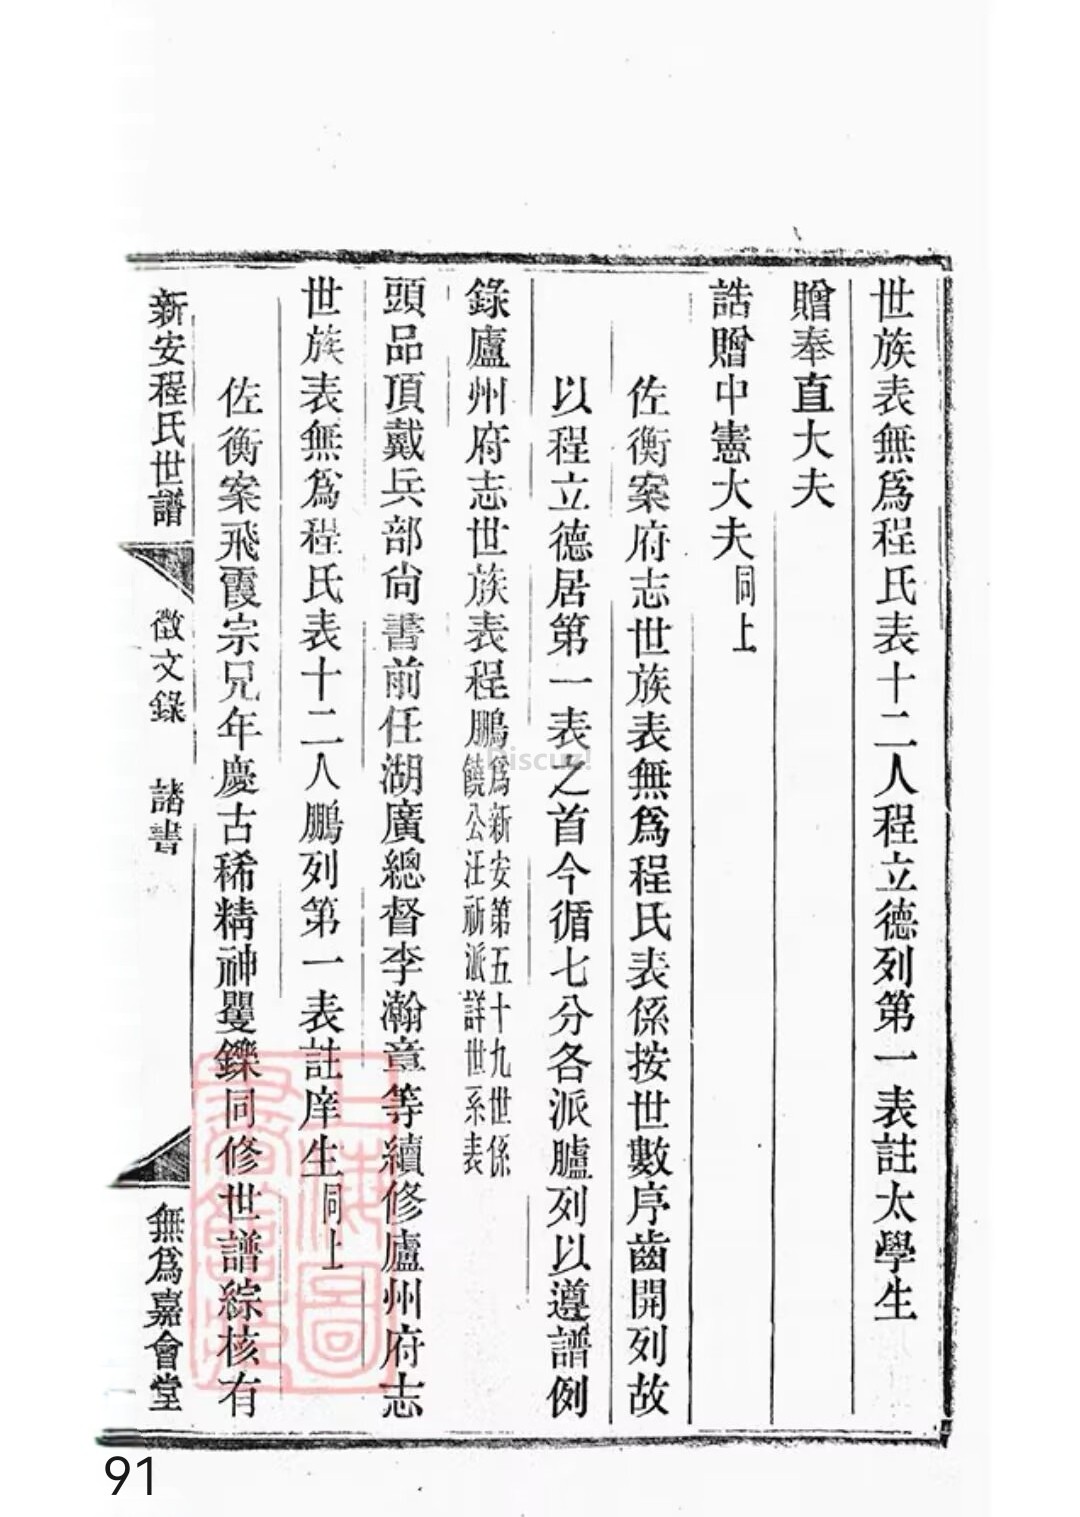 世族表無爲程氏表十二人程立德列第一表註太學生
贈奉直大夫
誥贈中憲大夫同上
佐衡案府志世族表無爲程氏表係按世數序齒開列故
以程立德居第一表之首今循七分各派臚列以遵譜例
錄廬州府志世族表程鵬爲新安第五十九世係
饒公汪祈派詳世系表
頭品頂戴兵部尙書前任湖廣總督李瀚章等續修廬州府志
世族表無爲程氏表十二人鵬列第一表註庠生同上
佐衡案飛霞宗兄年慶古稀精神矍鑠同修世譜綜核有
新安程氏世譜
徵文錄 諸書
無爲嘉會堂
上海圖
Discuz!
91